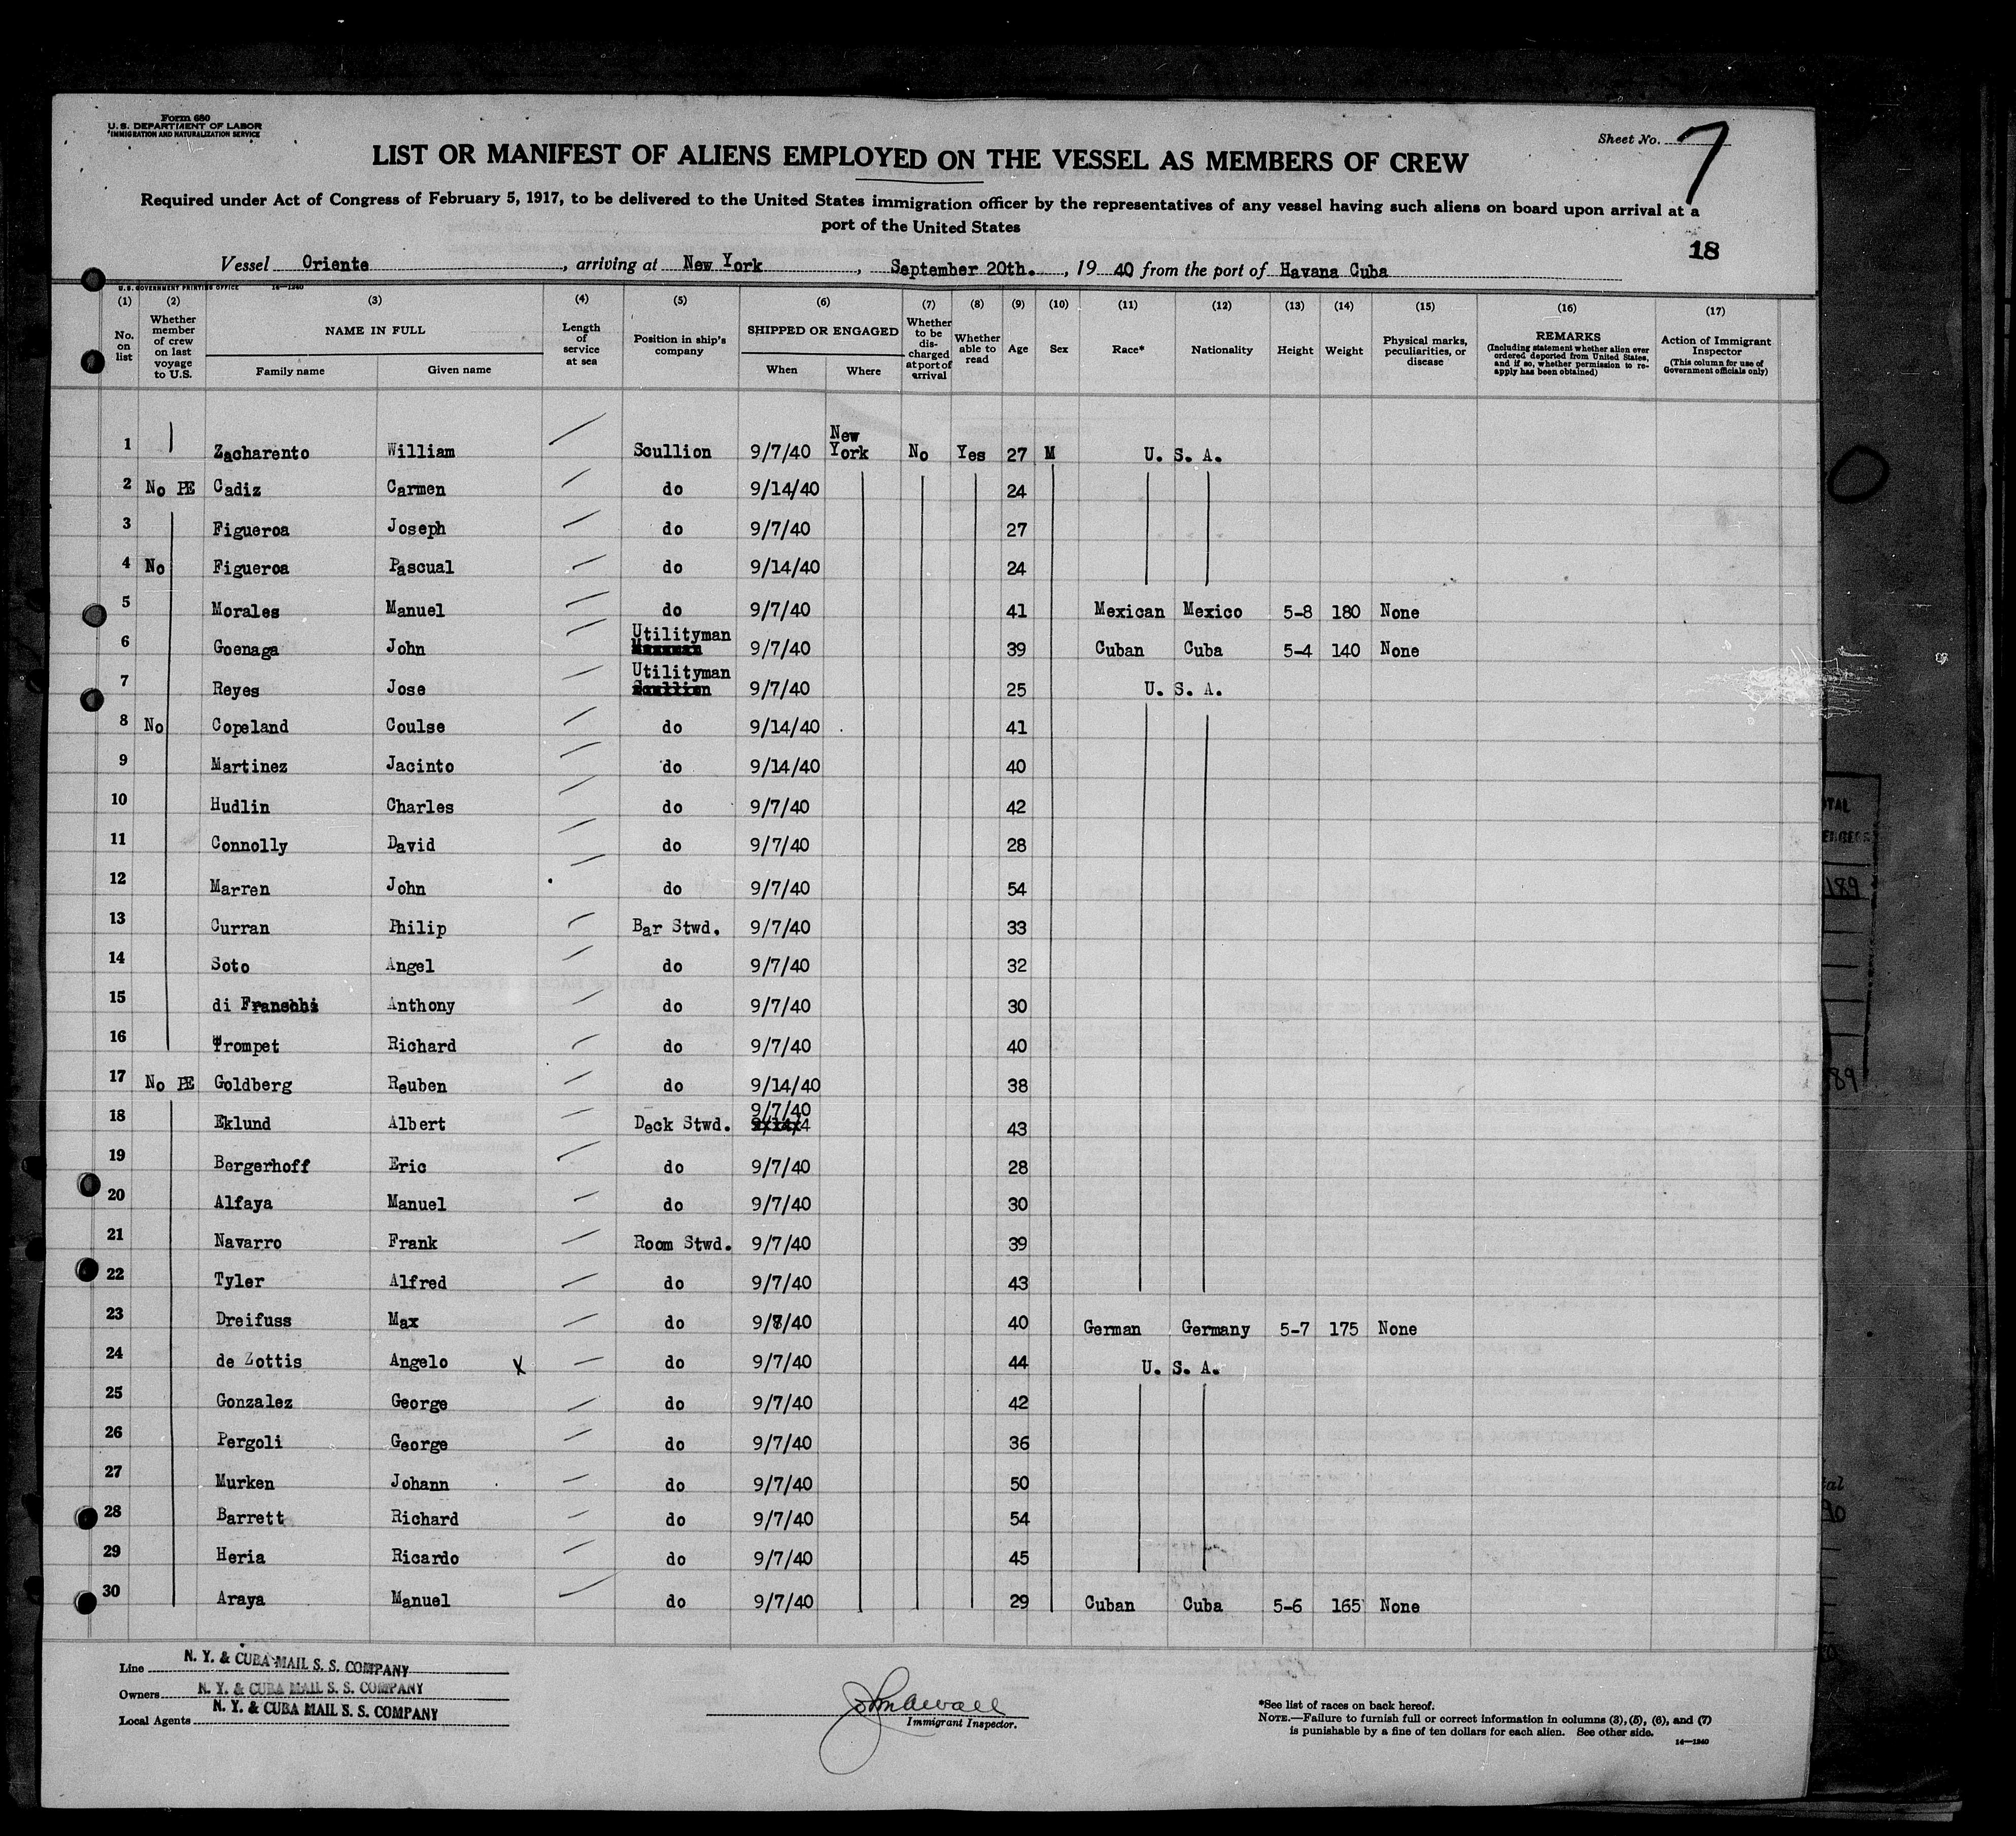 Form 680
U. S. DEPARTMENT OF LABOR
IMMIGRATION AND NATURALIZATION SERVICE
Sheet No. 7
LIST OR MANIFEST OF ALIENS EMPLOYED ON THE VESSEL AS MEMBERS OF CREW
Required under Act of Congress of February 5, 1917, to be delivered to the United States immigration officer by the representatives of any vessel having such aliens on board upon arrival at a
port of the United States
18
Vessel Oriente, arriving at New York, September 20th., 19 40 from the port of Havana Cuba
U.S. GOVERNMENT PRINTING OFFICE
(1) (2) (3) (4) (5) (6) (7) (8) (9) (10) (11) (12) (13) (14) (15) (16) (17)
No. on list
Whether member of crew on last voyage to U.S.
NAME IN FULL
Family name
Given name
Length of service at sea
Position in ship's company
SHIPPED OR ENGAGED
When
Where
Whether to be discharged at port of arrival
Whether able to read
Age
Sex
Race*
Nationality
Height
Weight
Physical marks, peculiarities, or disease
REMARKS
(Including statement whether alien ever ordered deported from United States, and if so, whether permission to re-apply has been obtained)
Action of Immigrant Inspector
(This column for use of Government officials only)
1 Zacharento William Scullion 9/7/40 New York No Yes 27 M U. S. A.
2 No PE Cadiz Carmen do 9/14/40 24
3 Figueroa Joseph do 9/7/40 27
4 No Figueroa Pascual do 9/14/40 24
5 Morales Manuel do 9/7/40 41 Mexican Mexico 5-8 180 None
6 Goenaga John Utilityman 9/7/40 39 Cuban Cuba 5-4 140 None
7 Reyes Jose Utilityman Scullion 9/7/40 25 U. S. A.
8 No Copeland Coulse do 9/14/40 41
9 Martinez Jacinto do 9/14/40 40
10 Hudlin Charles do 9/7/40 42
11 Connolly David do 9/7/40 28
12 Marren John do 9/7/40 54
13 Curran Philip Bar Stwd. 9/7/40 33
14 Soto Angel do 9/7/40 32
15 di Anthony do 9/7/40 30
16 Trompet Richard do 9/7/40 40
17 No PE Goldberg Reuben do 9/14/40 38
18 Eklund Albert Deck Stwd. 9/7/40 9/14/4 43
19 Bergerhoff Eric do 9/7/40 28
20 Alfaya Manuel do 9/7/40 30
21 Navarro Frank Room Stwd. 9/7/40 39
22 Tyler Alfred do 9/7/40 43
23 Dreifuss Max do 40 German Germany 5-7 175 None
24 de Zottis Angelo X do 9/7/40 44 U. S. A.
25 Gonzalez George do 9/7/40 42
26 Pergoli George do 9/7/40 36
27 Murken Johann do 9/7/40 50
28 Barrett Richard do 9/7/40 54
29 Heria Ricardo do 9/7/40 45
30 Araya Manuel do 9/7/40 29 Cuban Cuba 5-6 165 None
Line N. Y. & CUBA MAIL S. S. COMPANY
Owners N. Y. & CUBA MAIL S. S. COMPANY
Local Agents N. Y. & CUBA MAIL S. S. COMPANY
Immigrant Inspector.
*See list of races on back hereof.
NOTE.—Failure to furnish full or correct information in columns (3), (5), (6), and (7)
is punishable by a fine of ten dollars for each alien. See other side.